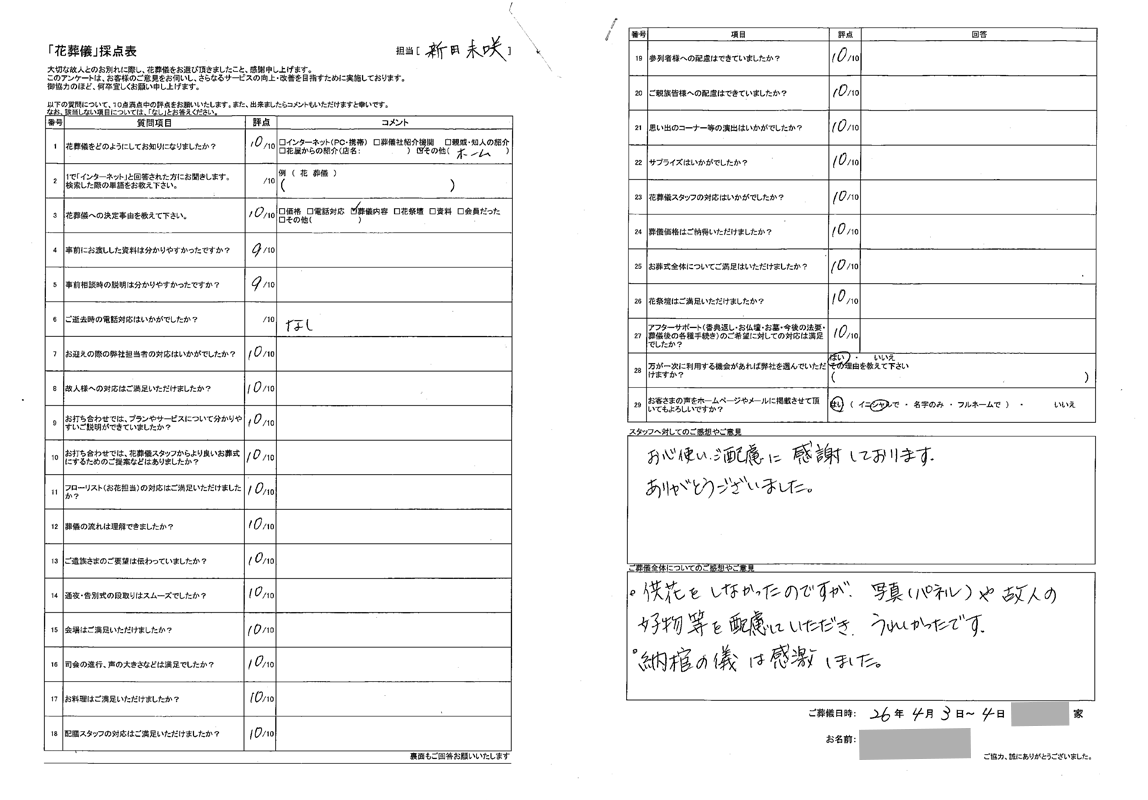 「花葬儀」採点表
担当[ 新田未咲 ]
大切な故人とのお別れに際し、花葬儀をお選び頂きましたこと、感謝申し上げます。
このアンケートは、お客様のご意見をお伺いし、さらなるサービスの向上・改善を目指すために実施しております。
御協力のほど、何卒宜しくお願い申し上げます。
以下の質問について、10点満点中の評点をお願いいたします。また、出来ましたらコメントもいただけますと幸いです。
なお、該当しない項目については、「なし」とお答えください。
番号 質問項目 評点 コメント
1 花葬儀をどのようにしてお知りになりましたか? 10/10 □インターネット(PC・携帯) □葬儀社紹介機関 □親戚・知人の紹介
□花屋からの紹介(店名: ) ☑その他( ホーム )
2 1で「インターネット」と回答された方にお聞きします。 /10 例 ( 花 葬儀 )
検索した際の単語をお教え下さい。 ( )
3 花葬儀への決定事由を教えて下さい。 10/10 □価格 □電話対応 ☑葬儀内容 □花祭壇 □資料 □会員だった
□その他( )
4 事前にお渡しした資料は分かりやすかったですか? 9/10
5 事前相談時の説明は分かりやすかったですか? 9/10
6 ご逝去時の電話対応はいかがでしたか? /10 なし
7 お迎えの際の弊社担当者の対応はいかがでしたか? 10/10
8 故人様への対応はご満足いただけましたか? 10/10
9 お打ち合わせでは、プランやサービスについて分かりや
すいご説明ができていましたか? 10/10
10 お打ち合わせでは、花葬儀スタッフからより良いお葬式
にするためのご提案などはありましたか? 10/10
11 フローリスト(お花担当)の対応はご満足いただけました
か? 10/10
12 葬儀の流れは理解できましたか? 10/10
13 ご遺族さまのご要望は伝わっていましたか? 10/10
14 通夜・告別式の段取りはスムーズでしたか? 10/10
15 会場はご満足いただけましたか? 10/10
16 司会の進行、声の大きさなどは満足でしたか? 10/10
17 お料理はご満足いただけましたか? 10/10
18 配膳スタッフの対応はご満足いただけましたか? 10/10
裏面もご回答お願いいたします
番号 項目 評点 回答
19 参列者様への配慮はできていましたか? 10/10
20 ご親族皆様への配慮はできていましたか? 10/10
21 思い出のコーナー等の演出はいかがでしたか? 10/10
22 サプライズはいかがでしたか? 10/10
23 花葬儀スタッフの対応はいかがでしたか? 10/10
24 葬儀価格はご納得いただけましたか? 10/10
25 お葬式全体についてご満足はいただけましたか? 10/10
26 花祭壇はご満足いただけましたか? 10/10
27 アフターサポート(香典返し・お仏壇・お墓・今後の法要・
葬儀後の各種手続き)のご希望に対しての対応は満足
でしたか? 10/10
28 万が一次に利用する機会があれば弊社を選んでいただ
けますか? はい ・ いいえ
その理由を教えて下さい
( )
29 お客さまの声をホームページやメールに掲載させて頂
いてもよろしいですか? はい ( イニシャルで ・ 名字のみ ・ フルネームで ) ・ いいえ
スタッフへ対してのご感想やご意見
お心使い、ご配慮に感謝しております。
ありがとうございました。
ご葬儀全体についてのご感想やご意見
・供花をしなかったのですが、写真(パネル)や故人の
好物等を配慮していただき、うれしかったです。
・納棺の儀は感激しました。
ご葬儀日時: 26年 4月 3日~4日 家
お名前:
ご協力、誠にありがとうございました。